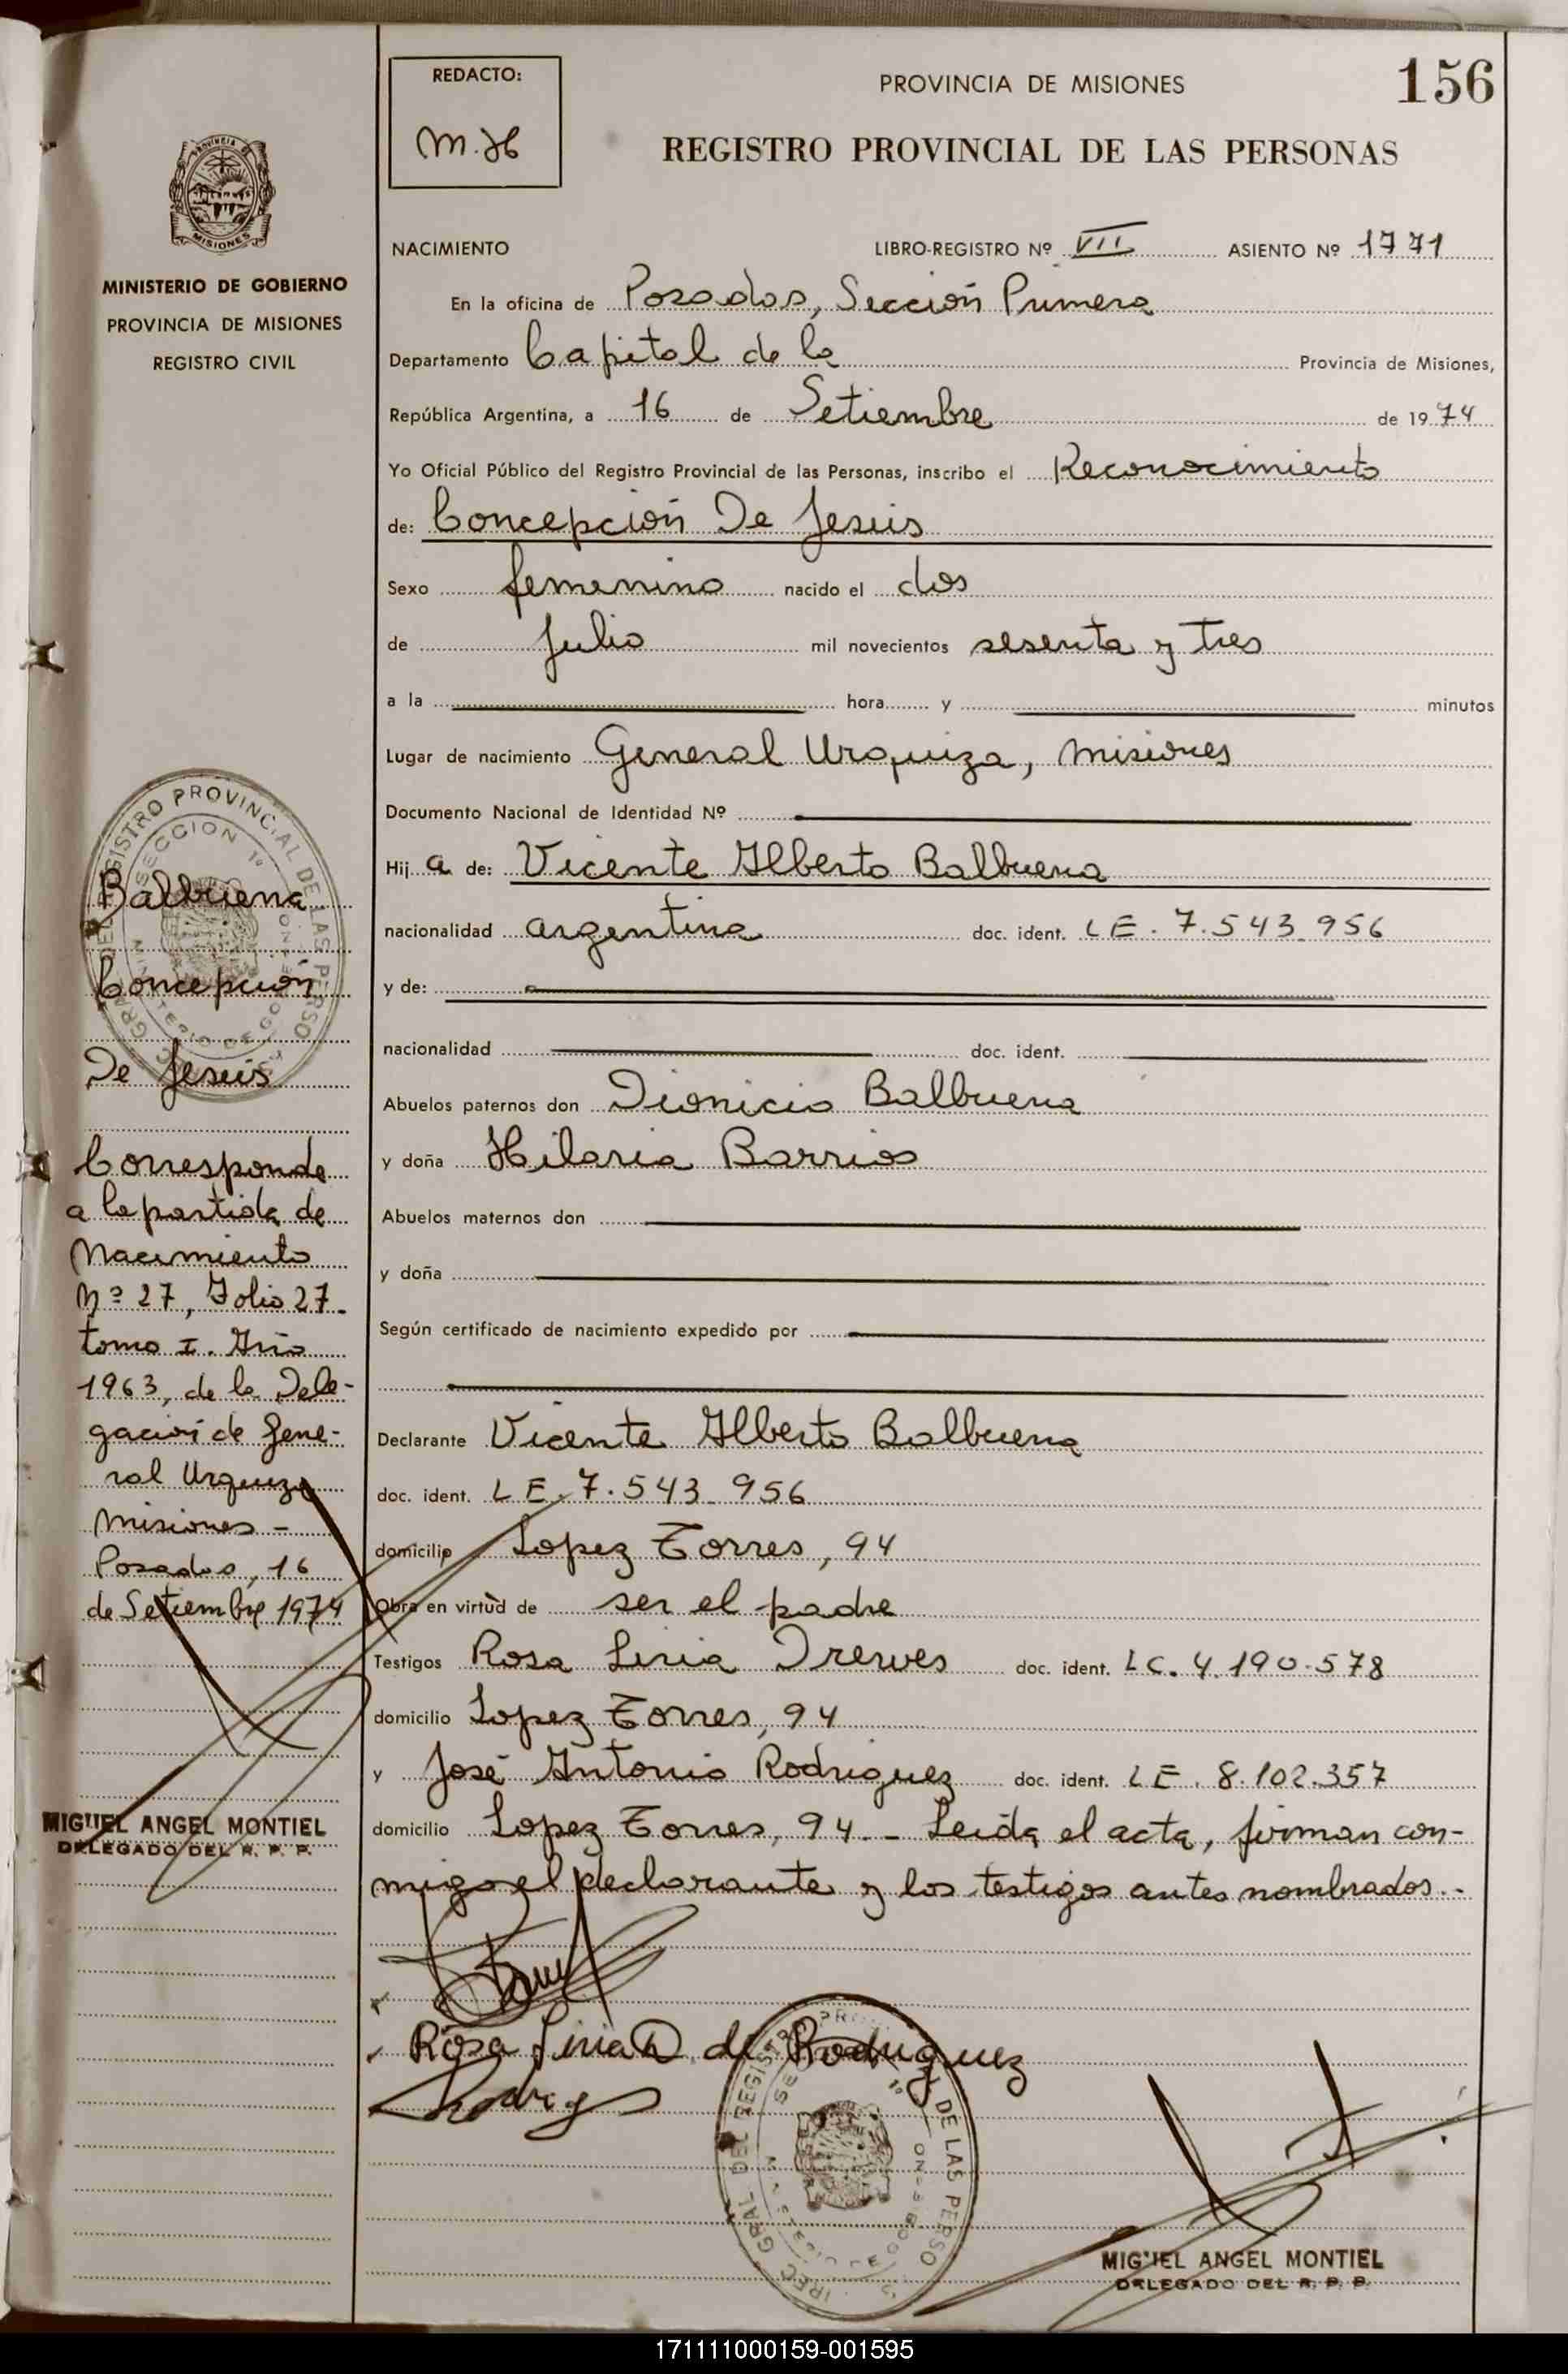 156
REDACTO:
M.H
PROVINCIA DE MISIONES
REGISTRO PROVINCIAL DE LAS PERSONAS
PROVINCIA DE
MISIONES
MINISTERIO DE GOBIERNO
PROVINCIA DE MISIONES
REGISTRO CIVIL
NACIMIENTO LIBRO-REGISTRO Nº VII ASIENTO Nº 1771
En la oficina de Posadas, Sección Primera
Departamento Capital de la Provincia de Misiones,
República Argentina, a 16 de Setiembre de 1974
Yo Oficial Público del Registro Provincial de las Personas, inscribo el Reconocimiento
de: Concepción De Jesús
Sexo femenino nacido el dos
de Julio mil novecientos sesenta y tres
a la hora y minutos
Lugar de nacimiento General Urquiza, Misiones
Documento Nacional de Identidad Nº
Hij a de: Vicente Alberto Balbuena
nacionalidad argentina doc. ident. LE. 7.543.956
y de:
nacionalidad doc. ident.
Abuelos paternos don Dionicio Balbuena
y doña Hilaria Barrios
Abuelos maternos don
y doña
Según certificado de nacimiento expedido por
Declarante Vicente Alberto Balbuena
doc. ident. LE. 7.543.956
domicilio Lopez Torres, 94
Obra en virtud de ser el padre
Testigos Rosa Liria Drewes doc. ident. LC. 4.190.578
domicilio Lopez Torres, 94
y José Antonio Rodriguez doc. ident. LE. 8.102.357
domicilio Lopez Torres, 94.- Leida el acta, firman con-
migo el declarante y los testigos antes nombrados.-
Rosa Liria D. de Rodriguez
MIGUEL ANGEL MONTIEL
DELEGADO DEL R. P. P.
Balbuena
Concepción
De Jesús
Corresponde
a la partida de
Nacimiento
Nº 27, Folio 27.
tomo I. Año
1963, de la Dele-
gación de Gene-
ral Urquiza
Misiones -
Posadas, 16
de Setiembre 1974
MIGUEL ANGEL MONTIEL
DELEGADO DEL R. P. P.
171111000159-001595